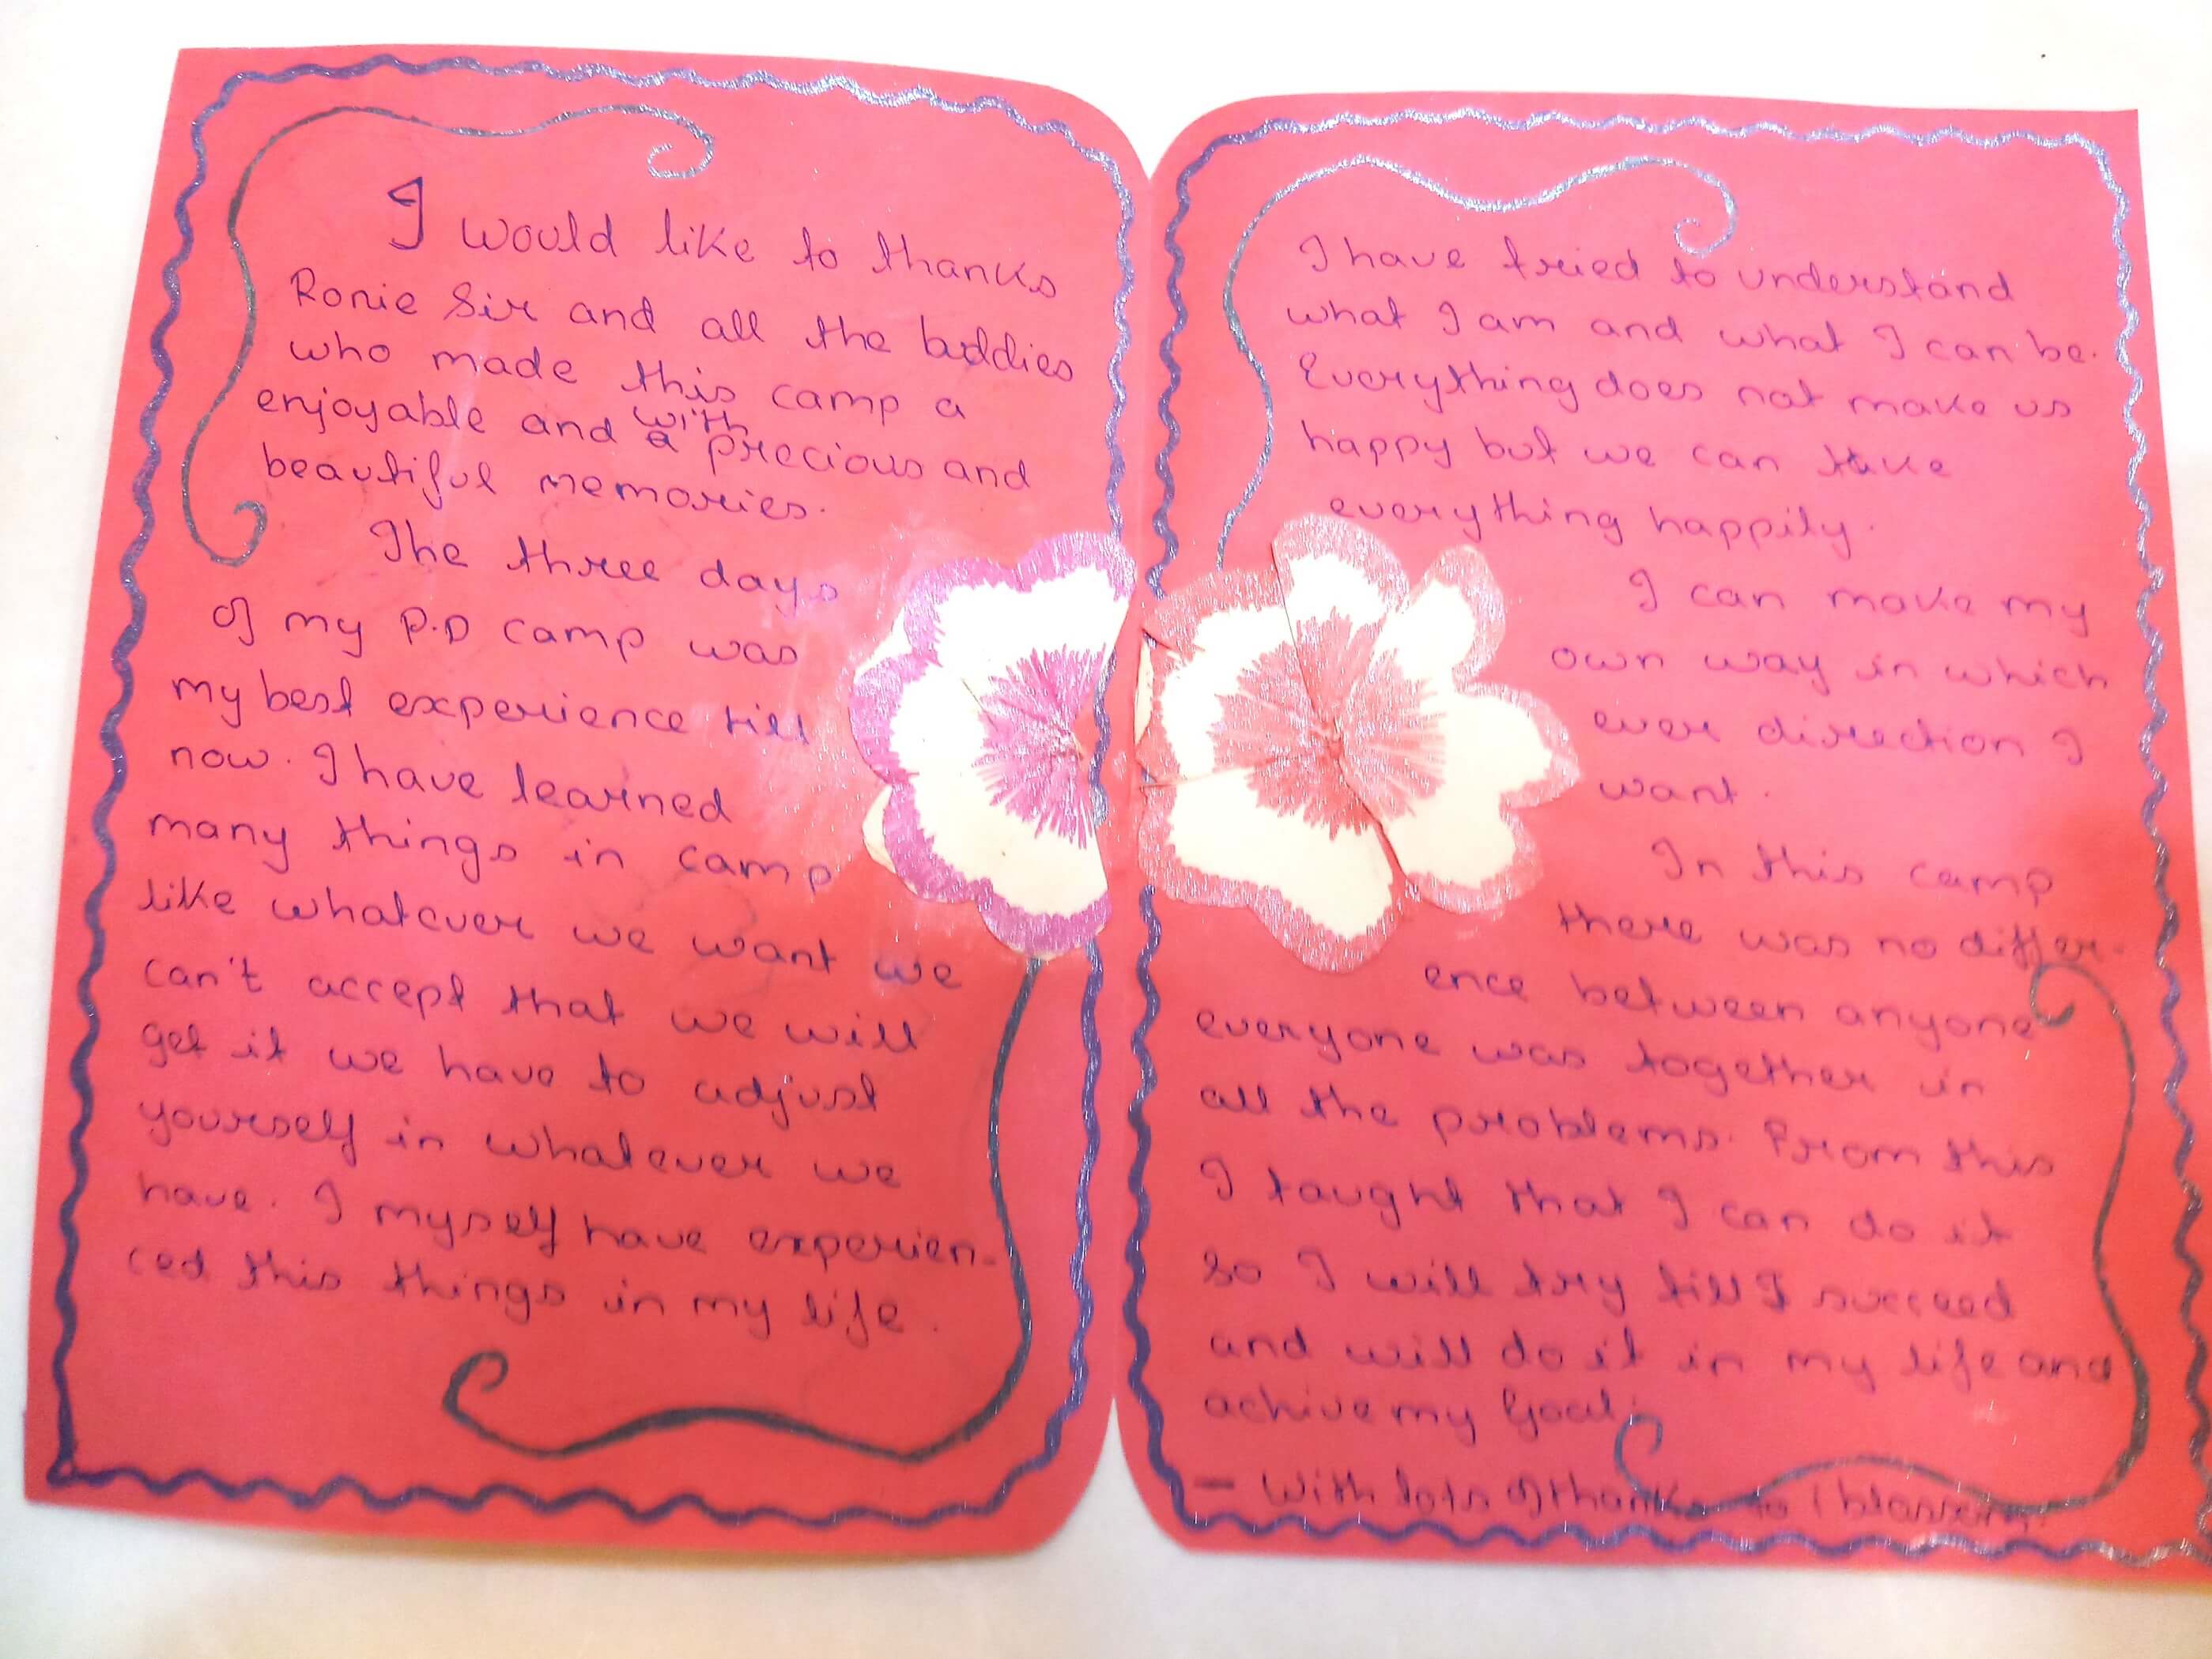 I would like to thanks
Ronie Sir and all the buddies
who made this camp a
enjoyable and with precious and
beautiful memories.
The three days
of my P.D camp was
my best experience till
now. I have learned
many things in camp
like whatever we want we
can't accept that we will
get it we have to adjust
yourself in whatever we
have. I myself have experien-
ced this things in my life.
I have tried to understand
what I am and what I can be.
Everything does not make us
happy but we can take
everything happily.
I can make my
own way in which
ever direction I
want.
In this camp
there was no differ-
ence between anyone
everyone was together in
all the problems. From this
I taught that I can do it
so I will try till I succeed
and will do it in my life and
achive my Goal.
- With lots of thanks to